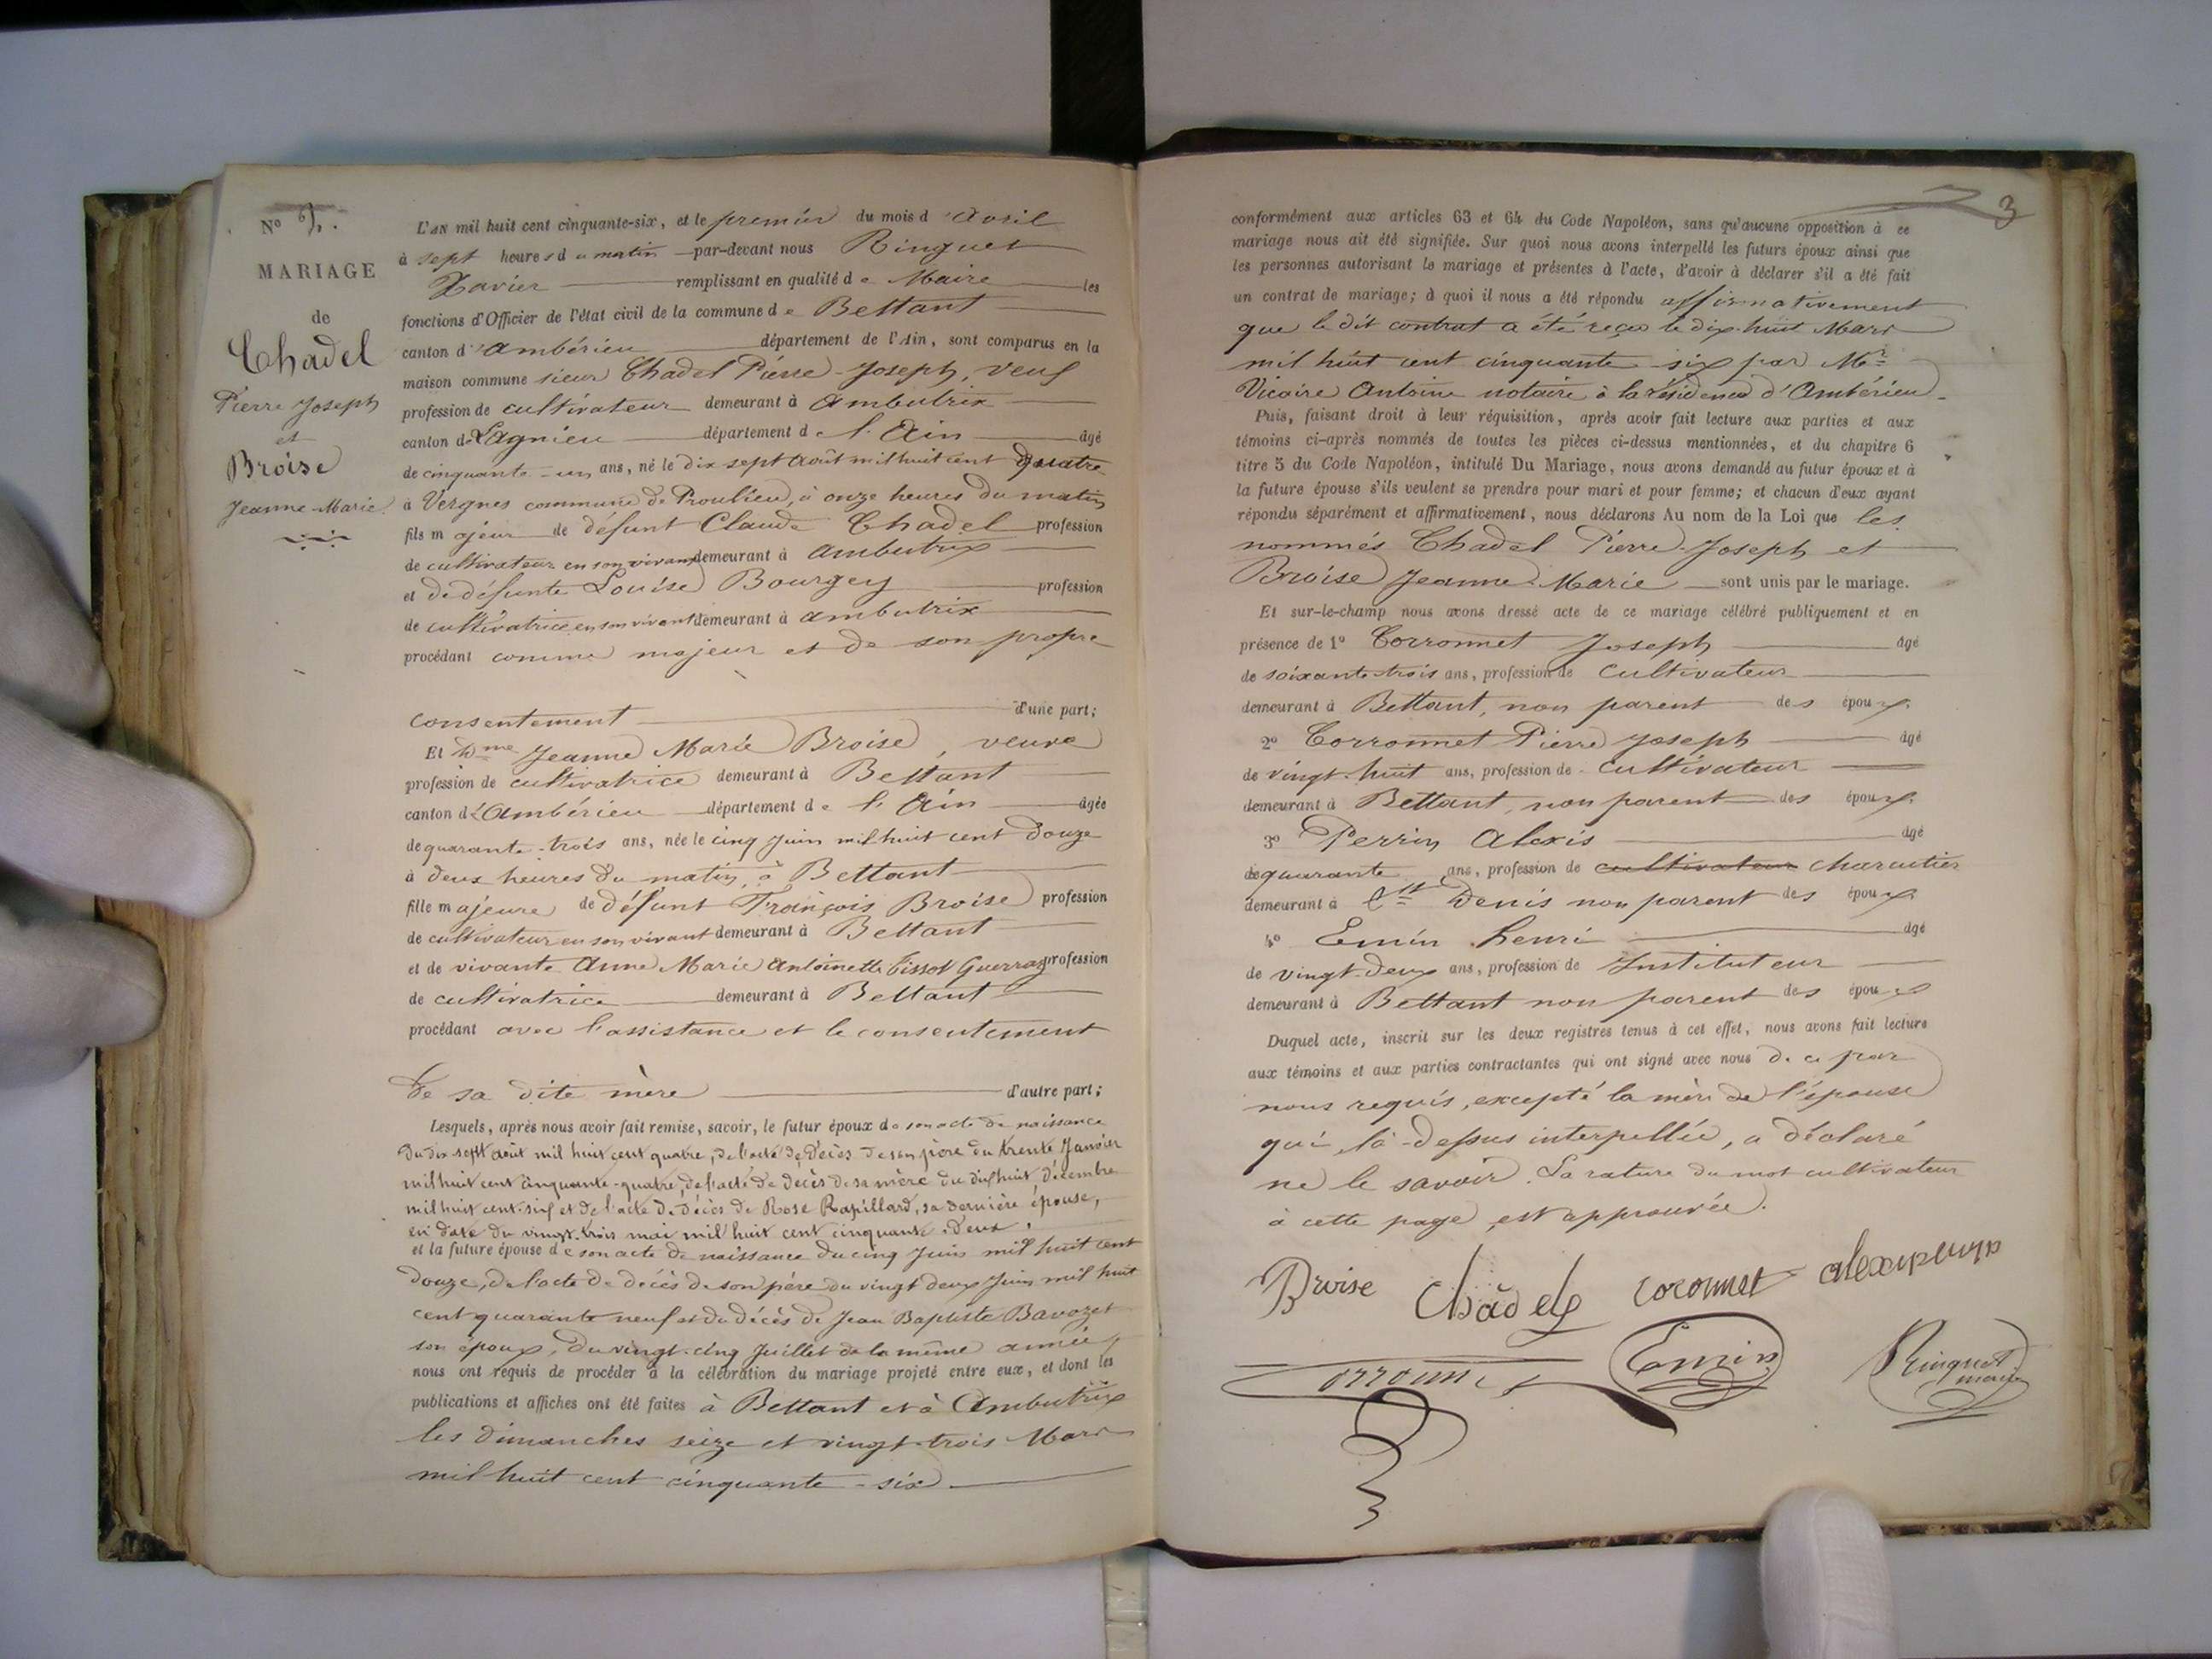 MARIAGE
de
Chadel
Pierre Joseph
et
Broise
Jeanne-Marie.
L'AN mil huit cent cinquante-six, et le premier du mois d'Avril
à sept heures du matin par-devant nous Ringuet
Xavier remplissant en qualité de Maire les
fonctions d'Officier de l'état civil de la commune de Bettant
canton d'Ambérieu département de l'Ain, sont comparus en la
maison commune sieur Chadel Pierre-Joseph, veuf
profession de cultivateur demeurant à Ambutrix
canton de Lagnieu département de l'Ain âgé
de cinquante-un ans, né le dix sept Août mil huit cent quatre
à Vergnes commune de Proulieu, à onze heures du matin
fils majeur de défunt Claude Chadel profession
de cultivateur en son vivant demeurant à Ambutrix
et de défunte Louise Bourgey profession
de cultivatrice en son vivant demeurant à Ambutrix
procédant comme majeur et de son propre
consentement d'une part;
Et Dme Jeanne Marie Broise, veuve
profession de cultivatrice demeurant à Bettant
canton d'Ambérieu département de l'Ain âgée
de quarante-trois ans, née le cinq Juin mil huit cent douze
à deux heures du matin, à Bettant
fille majeure de défunt François Broise profession
de cultivateur en son vivant demeurant à Bettant
et de vivante Anne Marie Antoinette Tissot Guerraz profession
de cultivatrice demeurant à Bettant
procédant avec l'assistance et le consentement
de sa dite mère d'autre part;
Lesquels, après nous avoir fait remise, savoir, le futur époux de son acte de naissance
du dix-sept août mil huit cent quatre, de l'acte de décès de son père du trente Janvier
mil huit cent cinquante-quatre, de l'acte de décès de sa mère du dix huit décembre
mil huit cent six et de l'acte de décès de Rose Rapillard, sa dernière épouse,
en date du vingt-trois mai mil huit cent cinquante-deux,
et la future épouse de son acte de naissance du cinq Juin mil huit cent
douze, de l'acte de décès de son père du vingt deux Juin mil huit
cent quarante neuf et du décès de Jean Baptiste Bavozet
son époux, du vingt-cinq Juillet de la même année,
nous ont requis de procéder à la célébration du mariage projeté entre eux, et dont les
publications et affiches ont été faites à Bettant et à Ambutrix
les dimanches seize et vingt-trois Mars
mil huit cent cinquante-six
3
conformément aux articles 63 et 64 du Code Napoléon, sans qu'aucune opposition à ce
mariage nous ait été signifiée. Sur quoi nous avons interpellé les futurs époux ainsi que
les personnes autorisant le mariage et présentes à l'acte, d'avoir à déclarer s'il a été fait
un contrat de mariage; à quoi il nous a été répondu affirmativement
que le dit contrat a été reçu le dix-huit Mars
mil huit cent cinquante six par Mr
Vicaire Antoine notaire à la résidence d'Ambérieu.
Puis, faisant droit à leur réquisition, après avoir fait lecture aux parties et aux
témoins ci-après nommés de toutes les pièces ci-dessus mentionnées, et du chapitre 6
titre 5 du Code Napoléon, intitulé Du Mariage, nous avons demandé au futur époux et à
la future épouse s'ils veulent se prendre pour mari et pour femme; et chacun d'eux ayant
répondu séparément et affirmativement, nous déclarons Au nom de la Loi que les
nommés Chadel Pierre-Joseph et
Broise Jeanne-Marie sont unis par le mariage.
Et sur-le-champ nous avons dressé acte de ce mariage célébré publiquement et en
présence de 1° Corronnet Joseph âgé
de soixante-trois ans, profession de cultivateur
demeurant à Bettant, non parent des époux.
2° Corronnet Pierre Joseph âgé
de vingt-huit ans, profession de cultivateur
demeurant à Bettant, non parent des époux.
3° Perrin Alexis âgé
de quarante ans, profession de cultivateur charcutier
demeurant à St Denis non parent des époux
4° Emin Henri âgé
de vingt-deux ans, profession de Instituteur
demeurant à Bettant non parent des époux
Duquel acte, inscrit sur les deux registres tenus à cet effet, nous avons fait lecture
aux témoins et aux parties contractantes qui ont signé avec nous de ce par
nous requis, excepté la mère de l'épouse
qui, là-dessus interpellée, a déclaré
ne le savoir. La rature du mot cultivateur
à cette page est approuvée.
Broise Chadel coronnet alexiperrin
Emin Ringuet
maire